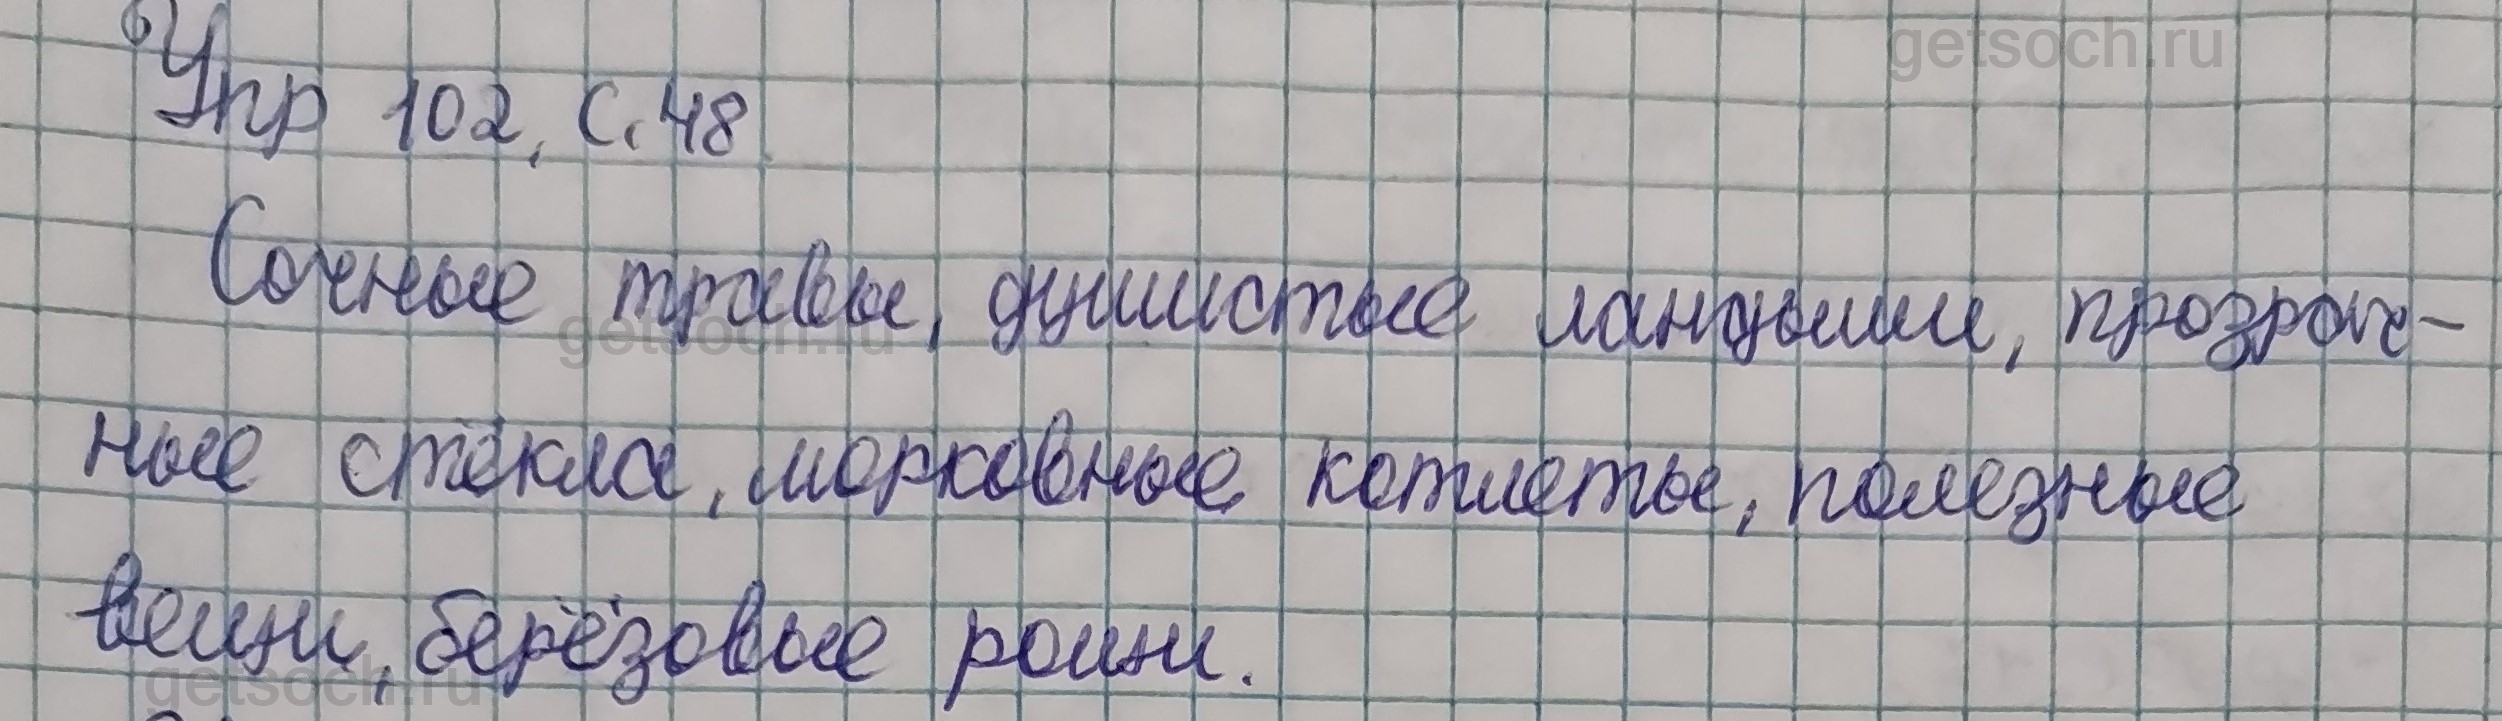 getsoch.ru
Упр 102, с. 48.
Сочные травы, душистые ландыши, прозрач-
getsoch.ru
ные стёкла, морковные котлеты, полезные
вещи, берёзовые рощи.
getsoch.ru